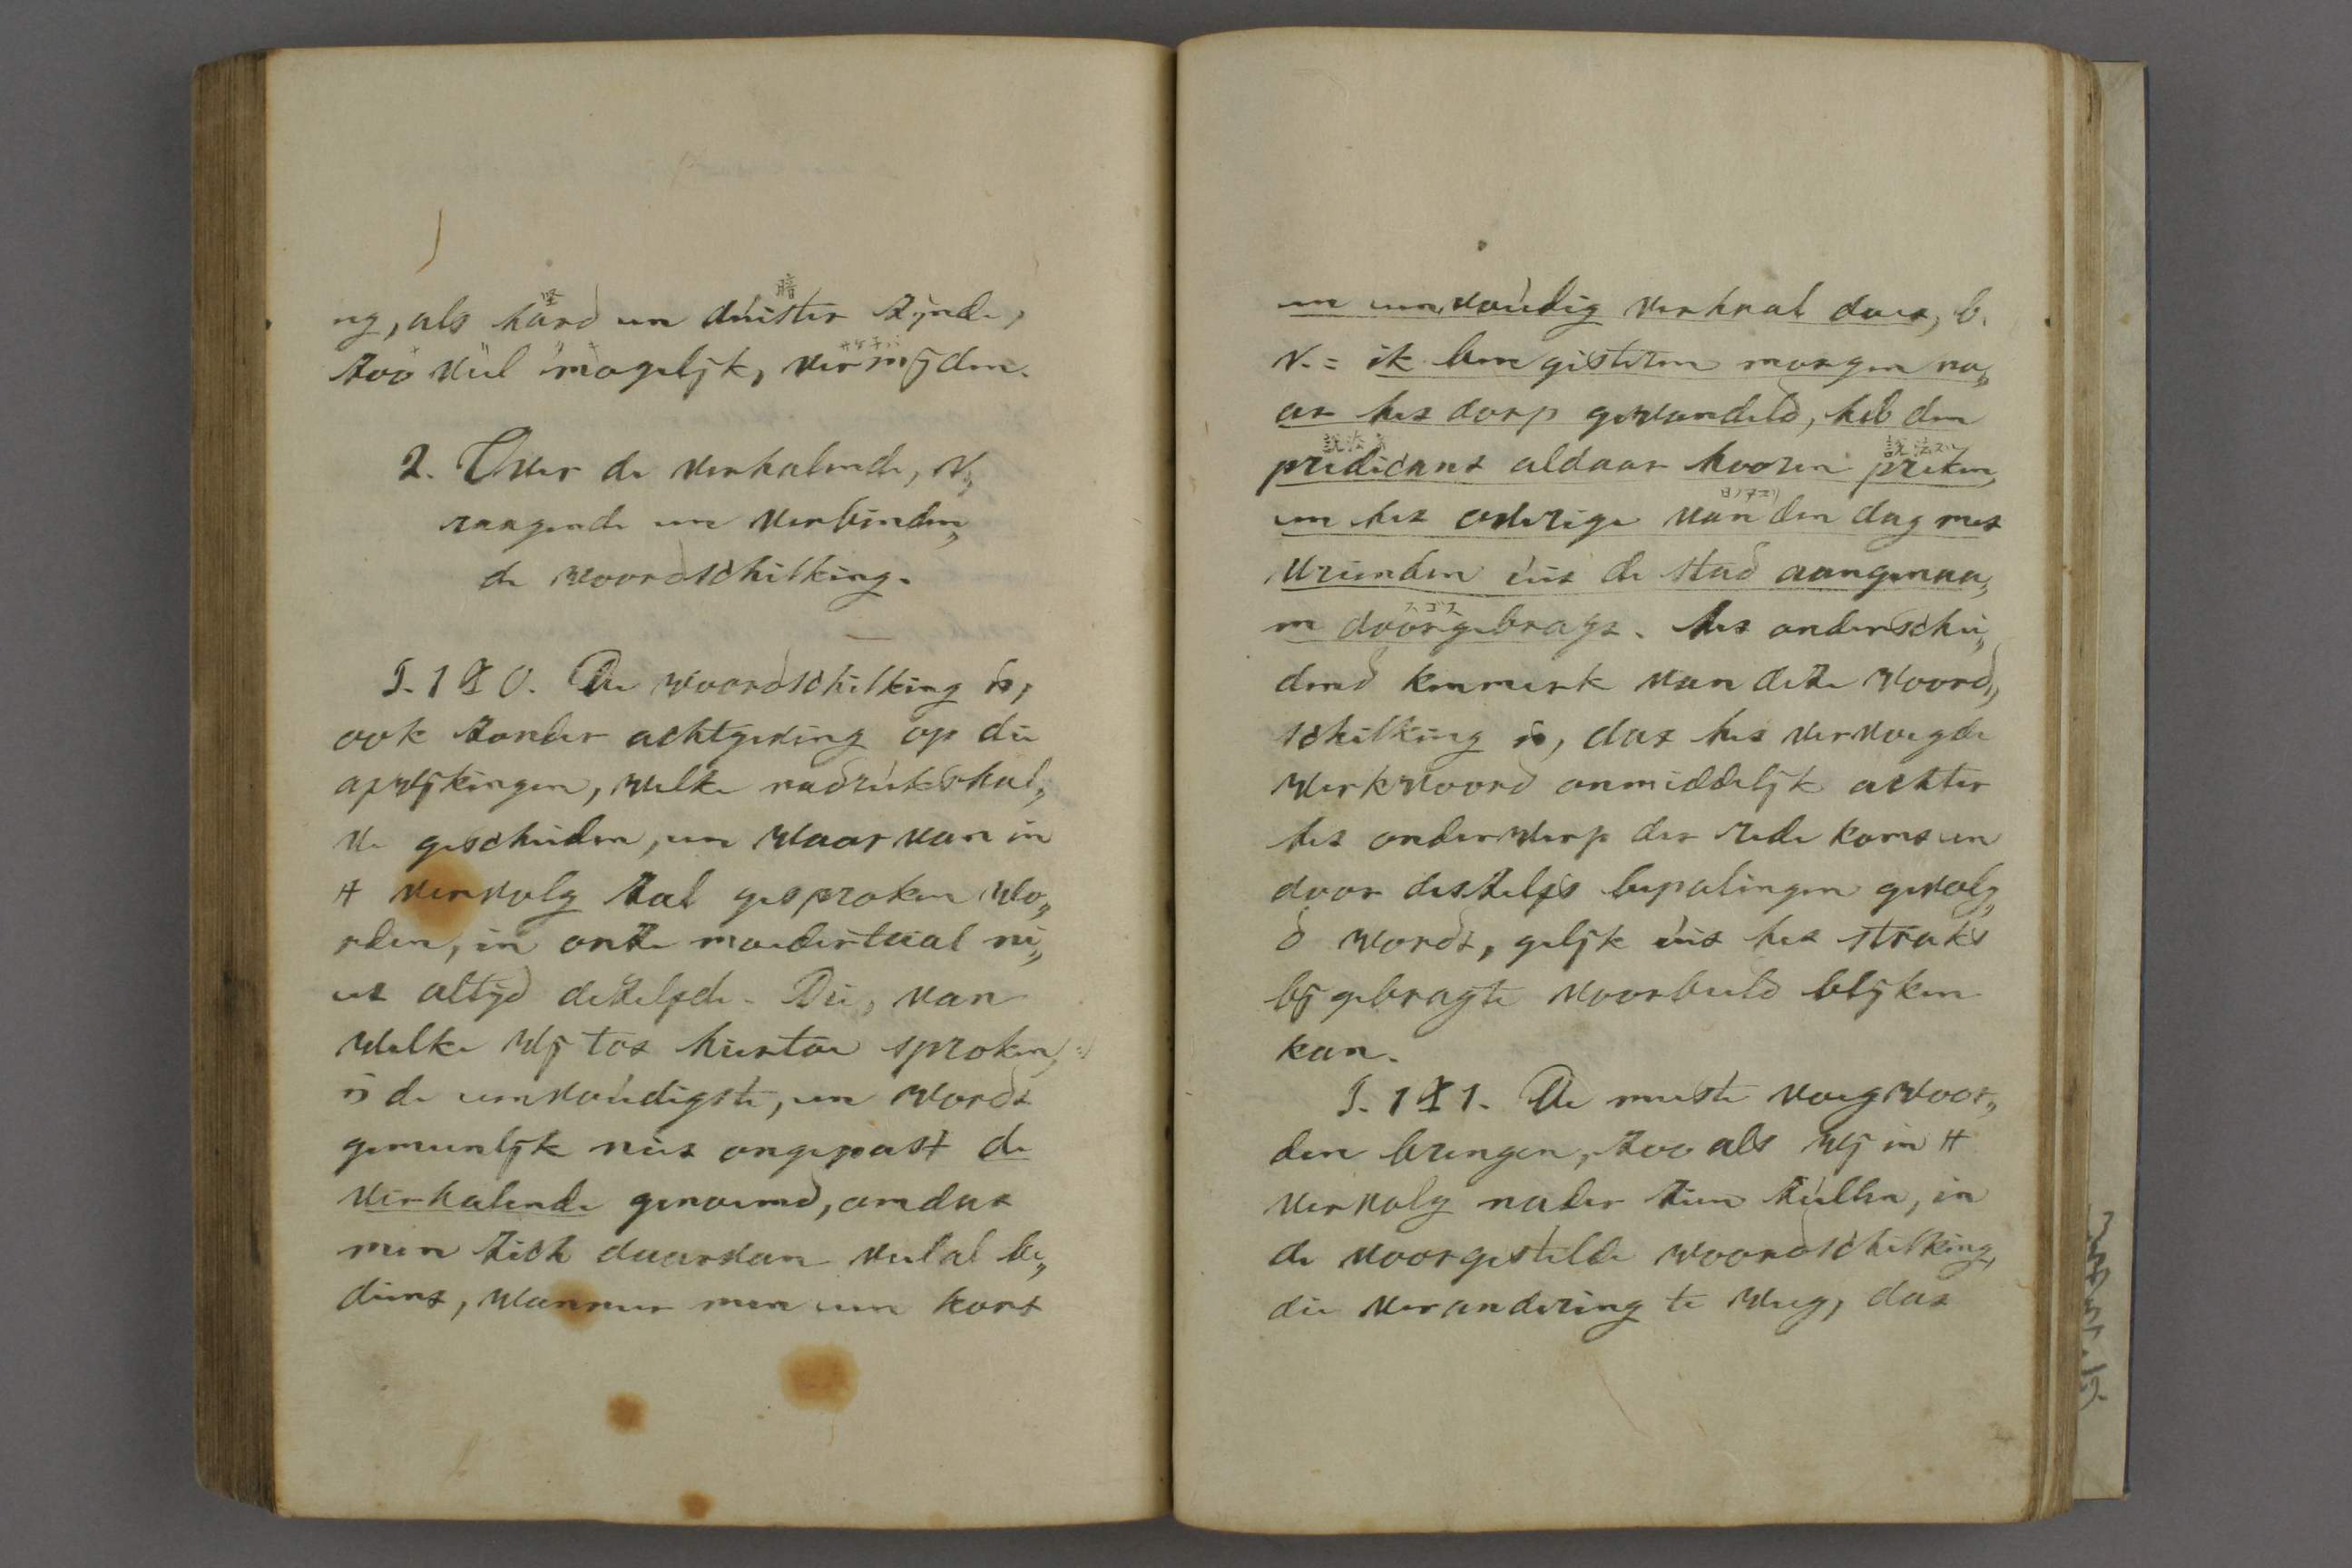 堅 暗
ng, als hard en duister zijnde,
zoo veel mogelijk, vermijden.
2. Over de verhalende, v„
ragende en verbinden„
de woordschikking.
§. 180. De woordschikking is,
ook zonder achtgeving op die
afwijkingen, welke nadrukshal„
ve geschieden, en waarvan in
't vervolg zal gesproken wo„
rden, in onze moedertaal ni„
et altijd dezelfde. Die, van
welke wij tot hiertoe sproken,
is de eenvoudigste, en wordt
gemeenlijk niet ongepast de
verhalende genoemd, omdat
men zich daarvan veelal be„
dient, wanneer men een kort
en eenvoudig verhaal doet, b.
v. = ik ben gisteren morgen na„
ar het dorp gewandeld, heb den
説法者 説法スル
predicant aldaar hooren preken,
en het overige van den dag met
vrienden uit de stad aangenaa„
スゴス
m doorgebragt. Het onderschei„
dend kenmerk van deze woord„
schikking is, dat het vervoegde
werkwoord onmiddelijk achter
het onderwerp der rede komt en
door deszelfs bepalingen gevolg„
d wordt, gelijk uit het straks
bijgebragte voorbeeld blijken
kan.
§. 181. De meeste voegwoor„
den brengen, zoo als wij in 't
vervolg nader zien zullen, in
de voorgestelde woordschikking,
die verandering te weeg, dat